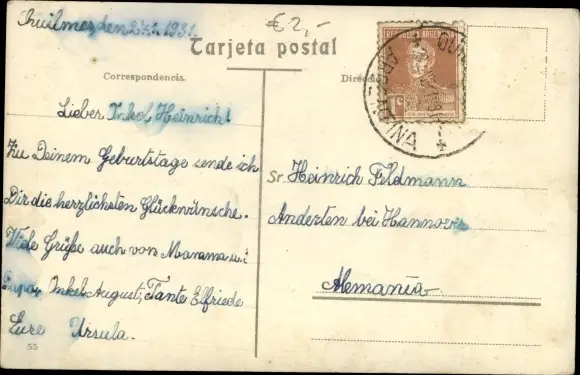 Quilmes, den 27.1.1931.
€ 2,-
Tarjeta postal
Correspondencia.
Lieber Onkel Heinrich!
Zu Deinem Geburtstage sende ich
Dir die herzlichsten Glückwünsche.
Viele Grüße auch von Mamma u.
Papa, Onkel August, Tante Elfriede
Eure Ursula.
55
Direcció
REPUBLICA ARGENTINA
1c
ARGENTINA
Sr. Heinrich Feldmann
Anderten bei Hannover
Alemania